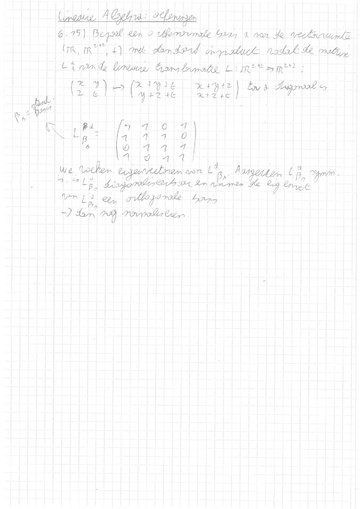 Lineaire Algebra: oefeningen
6.15) Bepaal een orthonormale basis α van de vectorruimte
(ℝ, ℝ²ˣ², +) met standaard inproduct zodat de matrix
van de lineaire transformatie L: ℝ²ˣ² → ℝ²ˣ²:
( x y ) → ( x+y+t x+y+z ) diagonaal is
( z t ) ( y+z+t x+z+t )
β₀ = stand. basis
L = ( 1 1 0 1 )
( 1 1 1 0 )
( 0 1 1 1 )
( 1 0 1 1 )
we zoeken eigenvectoren van L. Aangezien L symm.
is is L diagonaliseerbaar en vormen de eig
van L een orthogonale basis
→ dan nog normaliseren